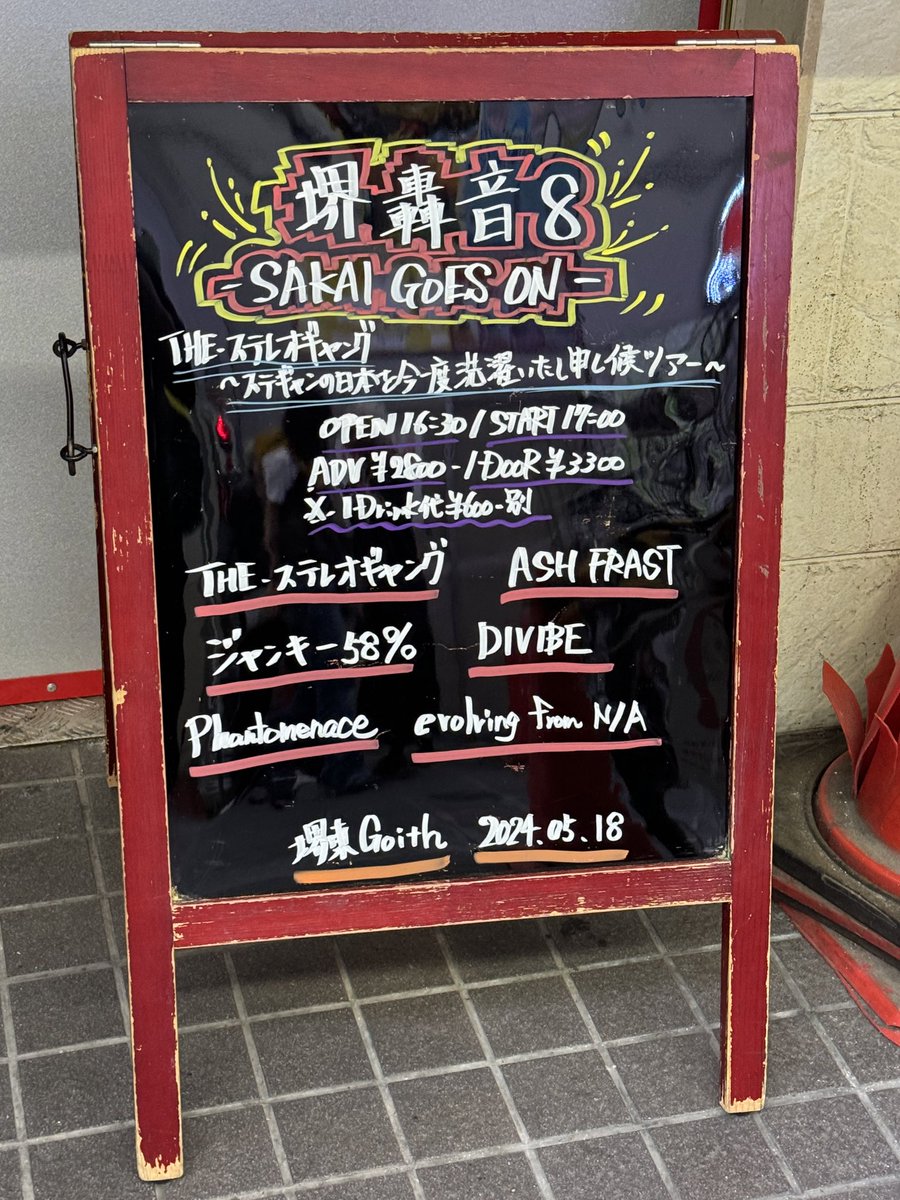 堺 轟 音 8
- SAKAI GOES ON -
THE-ステレオギャング
～ステギャンの日本を今一度洗濯いたし申し候ツアー～
OPEN 16:30 / START 17:00
ADV ¥2800- / DOOR ¥3300
X-1Drink代¥600-別
THE-ステレオギャング ASH FRAST
ジャンキー58% DIVIBE
Phantomenace evolving from N/A
堺東Goith 2024.05.18